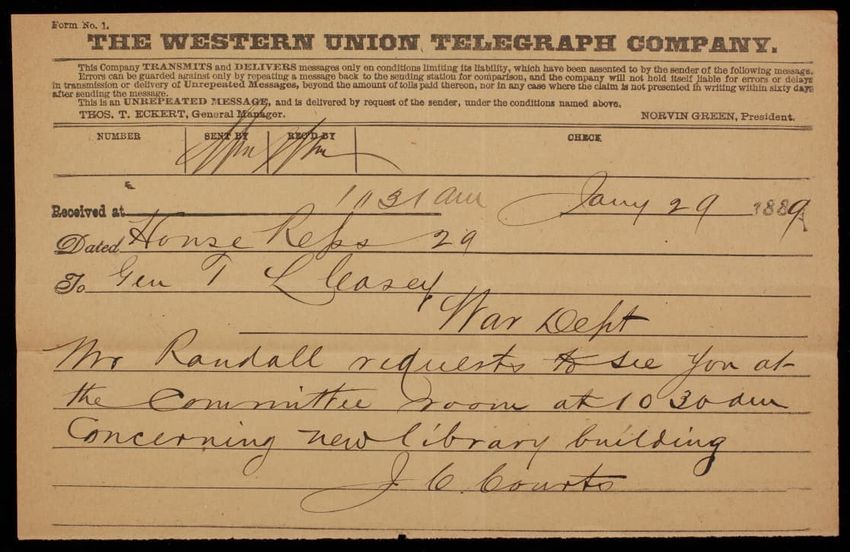 Form No. 1.
THE WESTERN UNION TELEGRAPH COMPANY.
This Company TRANSMITS and DELIVERS messages only on conditions limiting its liability, which have been assented to by the sender of the following message.
Errors can be guarded against only by repeating a message back to the sending station for comparison, and the company will not hold itself liable for errors or delays
in transmission or delivery of Unrepeated Messages, beyond the amount of tolls paid thereon, nor in any case where the claim is not presented in writing within sixty days
after sending the message.
This is an UNREPEATED MESSAGE, and is delivered by request of the sender, under the conditions named above.
THOS. T. ECKERT, General Manager. NORVIN GREEN, President.
NUMBER SENT BY REC'D BY CHECK
Received at 11 31 am Jany 29 1889
Dated House Reps 29
To Gen T L Casey,
War Dept
Mr Randall requests to see you at
the Committee room at 10 30 am
Concerning new library building
J C. Courts